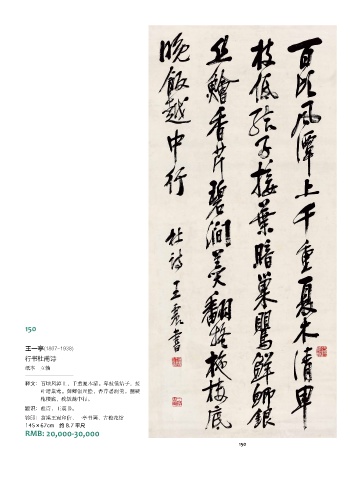 百頃風潭上千重夏木清卑
枝低結子接葉暗巢鶯鮮鯽銀
丝鱠香芹碧澗羹翻疑柂樓底
晚飯越中行
杜詩 王震書
150
王一亭(1867-1938)
行书杜甫诗
纸本 立轴
释文:百顷风潭上,千重夏木清。卑枝低结子,接
叶暗巢莺。鲜鲫银丝脍,香芹碧涧羹。翻疑
柂楼底,晚饭越中行。
款识:杜诗。王震书。
145×67cm 约 8.7 平尺
RMB: 20,000-30,000
150